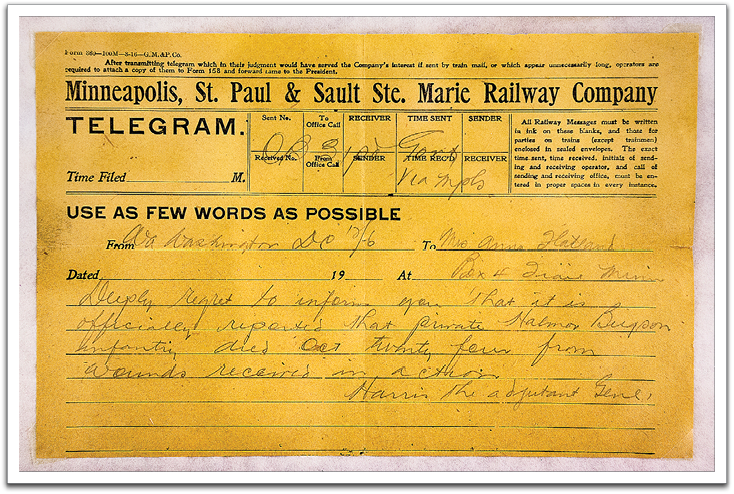 Form 369—100M—8-16—G.M.&P.Co.
After transmitting telegram which in their judgment would have served the Company's interest if sent by train mail, or which appear unnecessarily long, operators are
required to attach a copy of them to Form 158 and forward same to the President.
Minneapolis, St. Paul & Sault Ste. Marie Railway Company
TELEGRAM.
Time Filed M.
Sent No. To Office Call RECEIVER TIME SENT SENDER
Received No. From Office Call SENDER TIME REC'D RECEIVER
Govt
Via Mpls
All Railway Messages must be written
in ink on these blanks, and those for
parties on trains (except trainmen)
enclosed in sealed envelopes. The exact
time sent, time received, initials of send-
ing and receiving operator, and call of
sending and receiving office, must be en-
tered in proper spaces in every instance.
USE AS FEW WORDS AS POSSIBLE
From Washington DC 12/6 To Mrs Anna Flatland
Dated 19 At Box 4 Minn
Deeply regret to inform you that it is
officially reported that private Halmor
infantry died Oct twenty four from
wounds received in action
Harris the adjutant Genl,